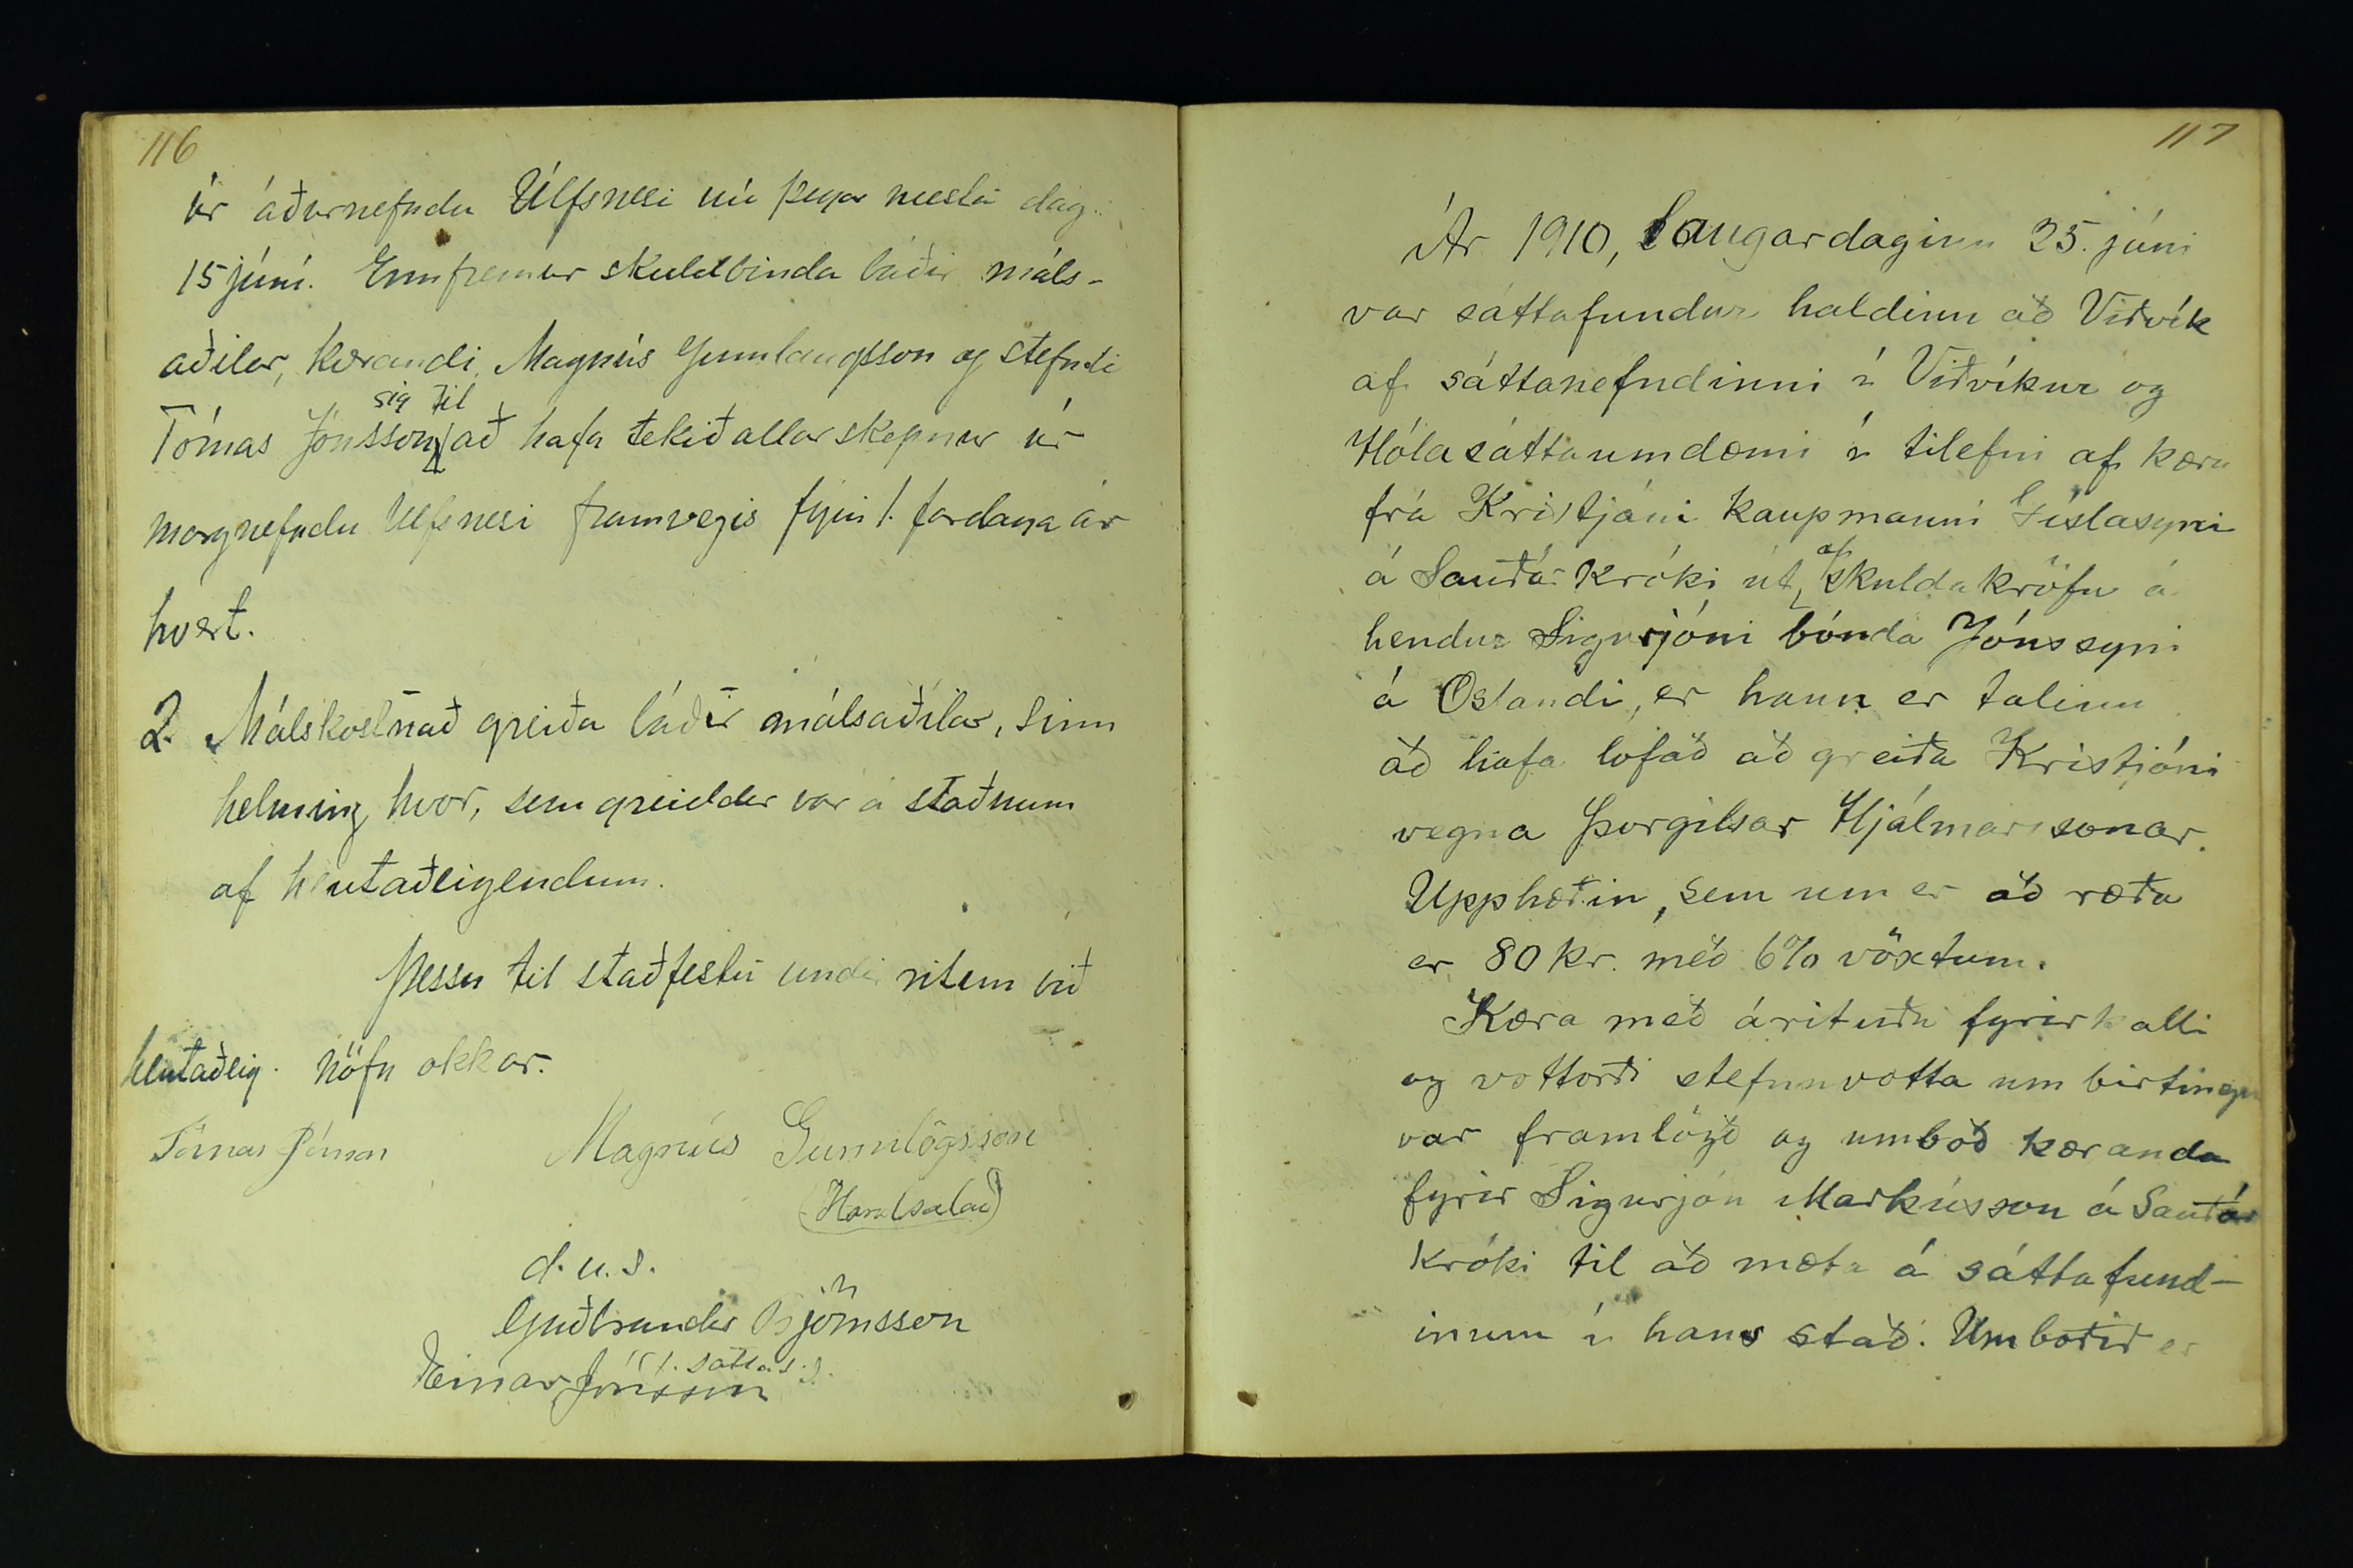 116
úr áðurnefndu Úlfsnesi nú þegar næsta dag
15 júní. Ennfremur skuldbinda báðir máls-
aðilar, kærandi, Magnús Gunnlaugsson og stefndi
sig til
Tómas Jónsson að hafa tekið allar skepnur úr
margnefndu Ulfsnesi framvegis fyrir 1. fardaga ár
hvert.
2. Málskostnað greiða báðir málsaðilar, sinn
helming hvor, sem greiddur var á staðnum
af hlutaðeigendum.
Þessu til staðfestu undir ritum við
hlutaðeig. nöfn okkar.
Tómas Jónsson
Magnús Gunnlögsson
(Handsalað)
d. u. s.
Guðbrandur Björnsson
Einar Jónsson
117
Ár 1910, Laugardaginn 25. júni
var sáttafundur haldinn að Viðvík
af sáttanefndinni í Viðvíkur og
Hólasáttaumdæmi í tilefni af kæru
frá Kristjáni kaupmanni Gíslasyni
á Sauðárkróki út af skuldakröfu á
hendur Sigurjóni bónda Jónssyni
á Oslandi, er hann er talinn
að hafa lofað að greiða Kristjáni
vegna Þorgilsar Hjálmarssonar.
Upphæðin, sem um er að ræða
er 80 kr. með 6% vöxtum.
Kæra með árituðu fyrirkalli
og vottorði stefnuvotta um birtingu
var framlögð og umboð kæranda
fyrir Sigurjón Markússon á Sauðár
króki til að mæta á sáttafund-
inum í hans stað. Umboðið er